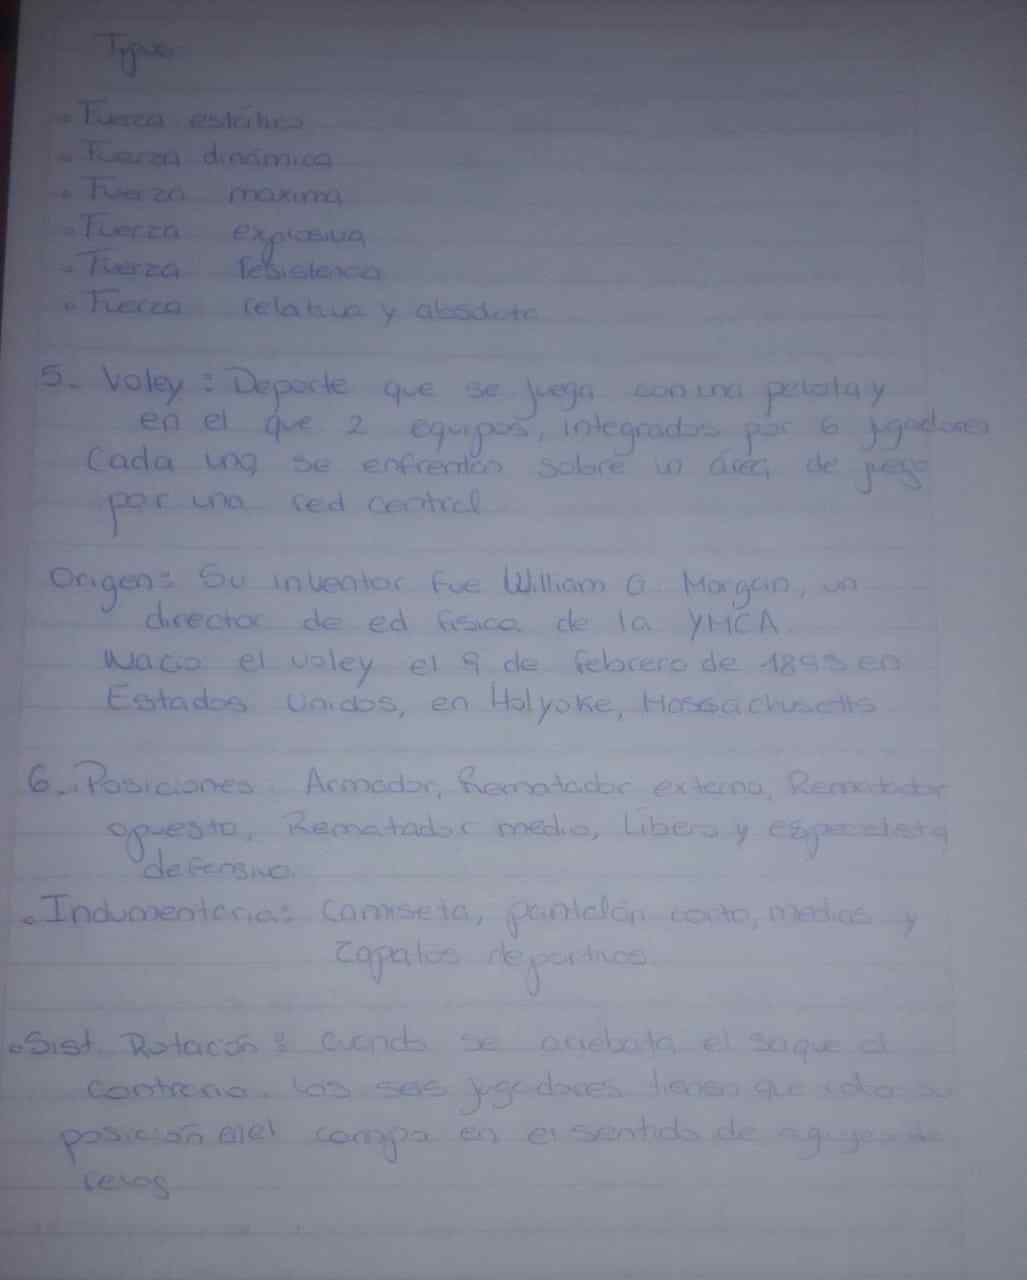 Tipos
• Fuerza estática
• Fuerza dinámica
• Fuerza maxima
• Fuerza explosiva
• Fuerza resistencia
• Fuerza relativa y absoluta
5- Voley: Deporte que se juega con una pelota y
en el que 2 equipos, integrados por 6 jugadores
Cada uno se enfrentan sobre un área de juego
por una red central
Origen: Su inventor fue William G. Morgan, un
director de ed física de la YMCA
Nacio el voley el 9 de febrero de 1895 en
Estados Unidos, en Holyoke, Massachusetts
6- Posiciones. Armador, Rematador externo, Rematador
opuesto, Rematador medio, Libero y especialista
defensivo.
• Indumentaria: Camiseta, pantalón corto, medias y
zapatos deportivos.
• Sist. Rotación: Cuando se arrebata el saque al
contrario. Los seis jugadores tienen que rotar su
posición en el campo en el sentido de agujas de
reloj